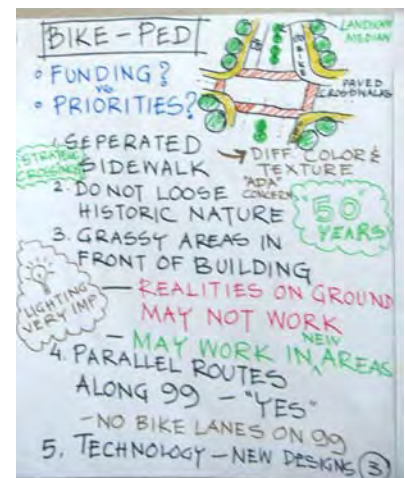 BIKE-PED
LANDSCAPE
MEDIAN
BIKE
PAVED
CROSSWALKS
• FUNDING?
VS
• PRIORITIES?
1. SEPERATED
SIDEWALK
STRATEGIC
CROSSINGS
→ DIFF. COLOR &
TEXTURE
"ADA"
CONCERN
2. DO NOT LOOSE
HISTORIC NATURE
"50"
YEARS
3. GRASSY AREAS IN
FRONT OF BUILDING
LIGHTING
VERY IMP
— REALITIES ON GROUND
MAY NOT WORK
— MAY WORK IN NEW AREAS
4. PARALLEL ROUTES
ALONG 99 – "YES"
- NO BIKE LANES ON 99
5. TECHNOLOGY – NEW DESIGNS 3